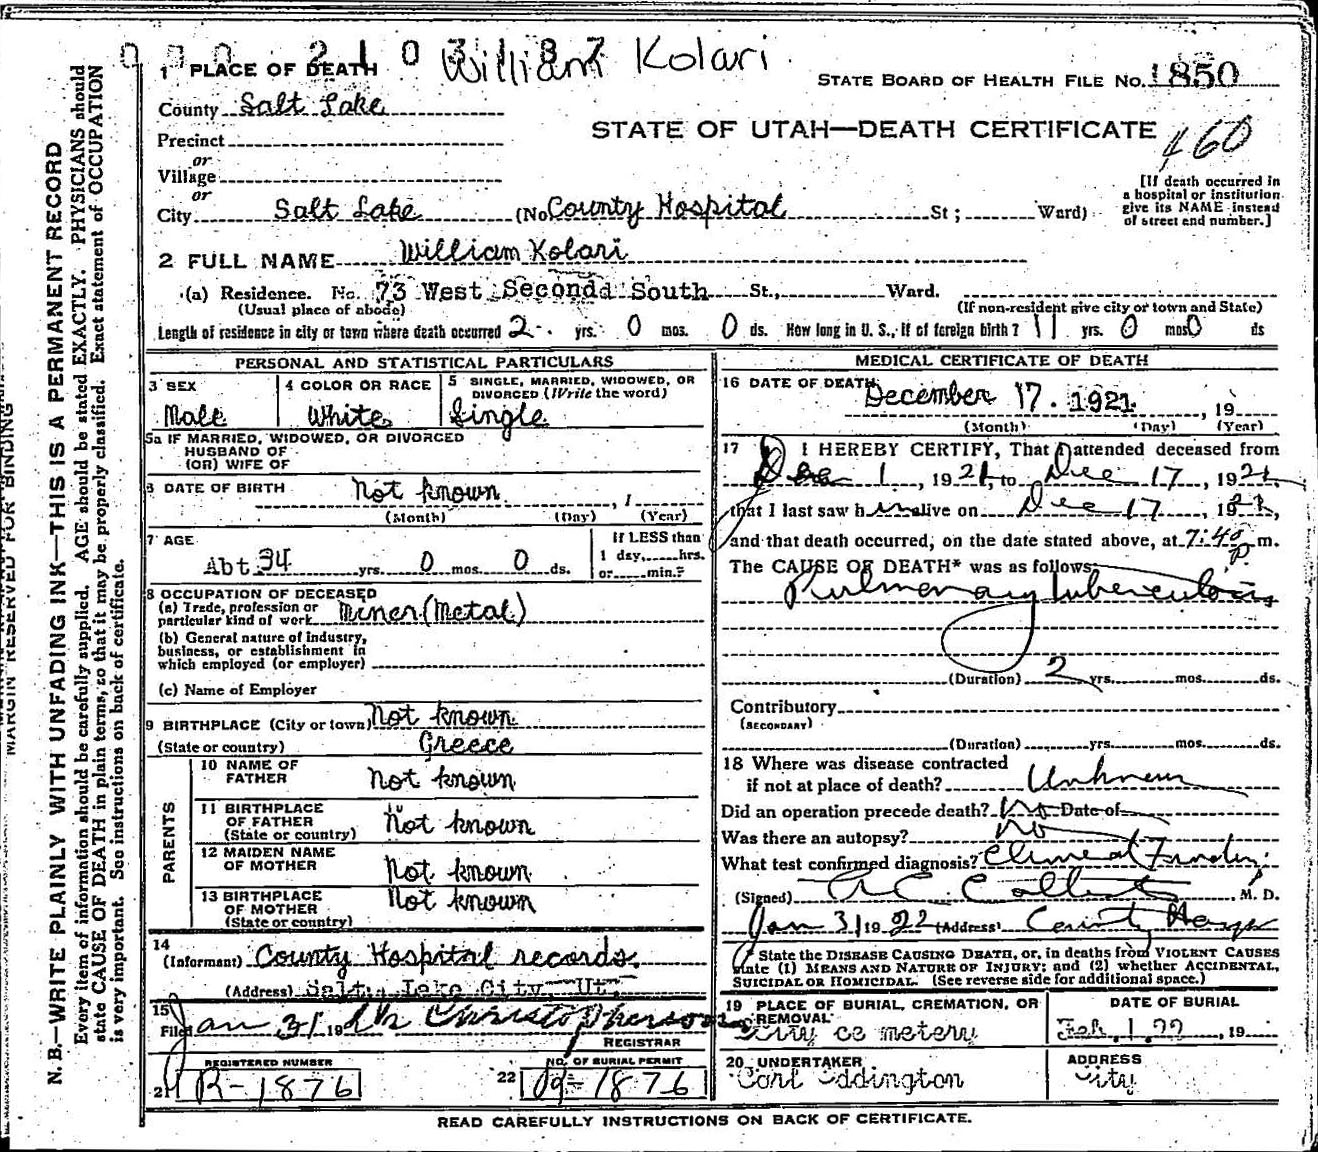 000 210387
William Kolari
1 PLACE OF DEATH
STATE BOARD OF HEALTH FILE No. 1850
County Salt Lake
STATE OF UTAH—DEATH CERTIFICATE
460
Precinct
or
Village
or
City Salt Lake (No County Hospital St; Ward)
[If death occurred in
a hospital or institution
give its NAME instead
of street and number.]
2 FULL NAME William Kolari
(a) Residence. No. 73 West Second South St., Ward.
(Usual place of abode) (If non-resident give city or town and State)
Length of residence in city or town where death occurred 2 yrs. 0 mos. 0 ds. How long in U. S., if of foreign birth? 11 yrs. 0 mos 0 ds
PERSONAL AND STATISTICAL PARTICULARS
3 SEX
Male
4 COLOR OR RACE
White
5 SINGLE, MARRIED, WIDOWED, OR
DIVORCED (Write the word)
Single
5a IF MARRIED, WIDOWED, OR DIVORCED
HUSBAND OF
(OR) WIFE OF
6 DATE OF BIRTH Not known , 1
(Month) (Day) (Year)
7 AGE
Abt 34 yrs. 0 mos. 0 ds.
If LESS than
1 day, hrs.
or min.?
8 OCCUPATION OF DECEASED
(a) Trade, profession or
particular kind of work Miner (Metal)
(b) General nature of industry,
business, or establishment in
which employed (or employer)
(c) Name of Employer
9 BIRTHPLACE (City or town) Not known
(State or country) Greece
PARENTS
10 NAME OF
FATHER Not known
11 BIRTHPLACE
OF FATHER
(State or country) Not known
12 MAIDEN NAME
OF MOTHER Not known
13 BIRTHPLACE
OF MOTHER
(State or country) Not known
14
(Informant) County Hospital records.
(Address) Salt Lake City, Ut.
15
Filed Jan 31 19 Christopherson
REGISTRAR
REGISTERED NUMBER
21 R-1876
NO. OF BURIAL PERMIT
22 1876
MEDICAL CERTIFICATE OF DEATH
16 DATE OF DEATH December 17. 1921 , 19
(Month) (Day) (Year)
17 I HEREBY CERTIFY, That I attended deceased from
Dec 1 , 1921, to Dec 17 , 1921,
that I last saw h im alive on Dec 17 , 1921,
and that death occurred, on the date stated above, at 7:40 p m.
The CAUSE OF DEATH* was as follows:
Pulmonary tuberculosis
(Duration) 2 yrs. mos. ds.
Contributory
(SECONDARY)
(Duration) yrs. mos. ds.
18 Where was disease contracted
if not at place of death? Unknown
Did an operation precede death? No Date of
Was there an autopsy? No
What test confirmed diagnosis? Clinical
(Signed) M. D.
Jan 31 1922 (Address) County
State the DISEASE CAUSING DEATH, or, in deaths from VIOLENT CAUSES
state (1) MEANS AND NATURE OF INJURY; and (2) whether ACCIDENTAL,
SUICIDAL OR HOMICIDAL. (See reverse side for additional space.)
19 PLACE OF BURIAL, CREMATION, OR
REMOVAL
City cemetery
DATE OF BURIAL
Feb. 1. 22 , 19
20 UNDERTAKER
Carl Eddington
ADDRESS
City
READ CAREFULLY INSTRUCTIONS ON BACK OF CERTIFICATE.
MARGIN RESERVED FOR BINDING
N. B.—WRITE PLAINLY WITH UNFADING INK—THIS IS A PERMANENT RECORD
Every item of information should be carefully supplied. AGE should be stated EXACTLY. PHYSICIANS should
state CAUSE OF DEATH in plain terms, so that it may be properly classified. Exact statement of OCCUPATION
is very important. See instructions on back of certificate.